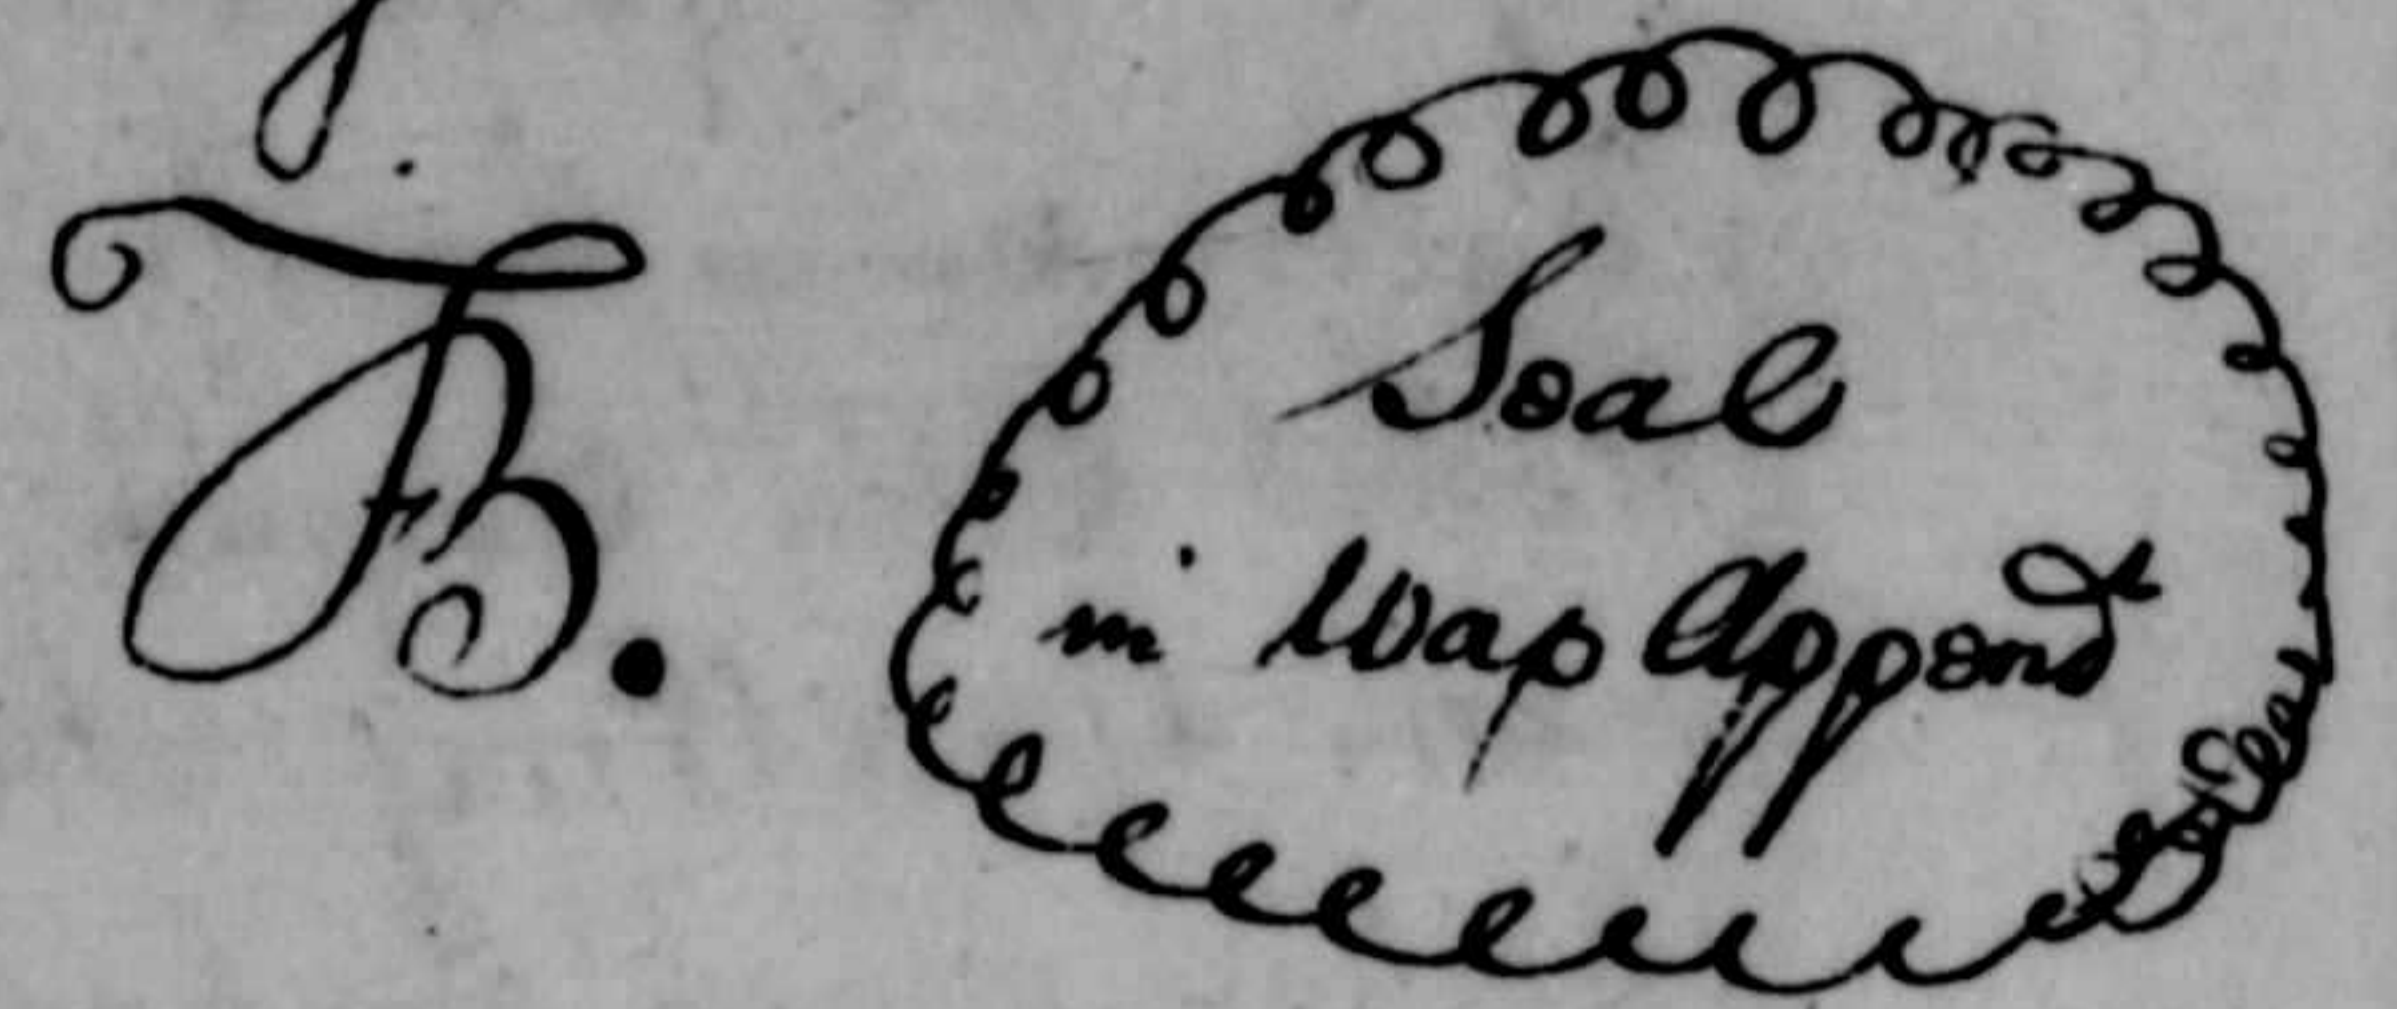 TB.
Seal
in Wax Append^t